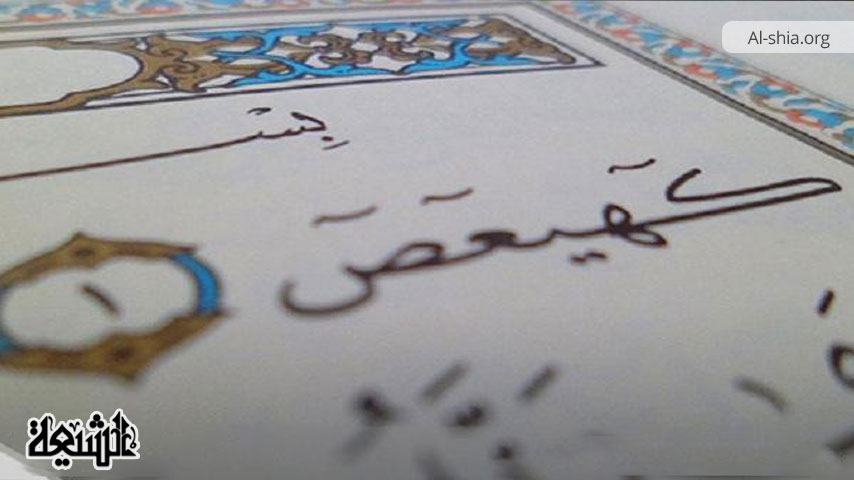 Al-shia.org
بِسْـ
كٓهيعٓصٓ
١
الشيعة